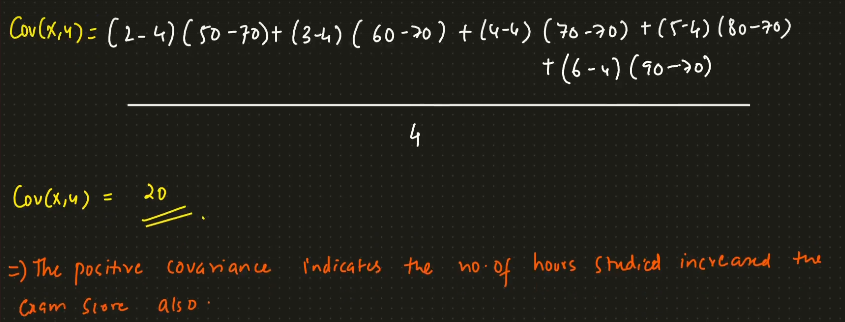 Cov(x,y) = (2-4)(50-70)+(3-4)(60-70)+(4-4)(70-70)+(5-4)(80-70)
+(6-4)(90-70)
4
Cov(x,y) = 20.
=) The positive covariance indicates the no.of hours studied increased the
Exam Score also.